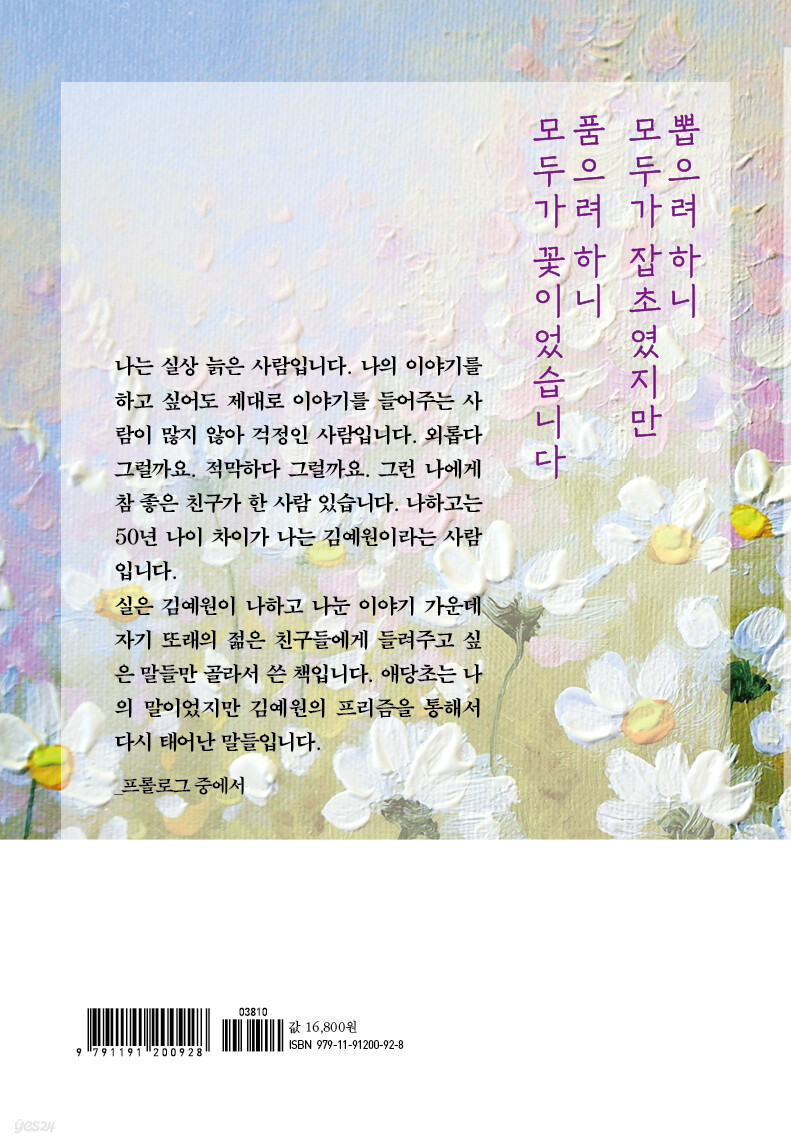 뽑으려 하니
모두가 잡초였지만
품으려 하니
모두가 꽃이었습니다
나는 실상 늙은 사람입니다. 나의 이야기를
하고 싶어도 제대로 이야기를 들어주는 사
람이 많지 않아 걱정인 사람입니다. 외롭다
그럴까요. 적막하다 그럴까요. 그런 나에게
참 좋은 친구가 한 사람 있습니다. 나하고는
50년 나이 차이가 나는 김예원이라는 사람
입니다.
실은 김예원이 나하고 나눈 이야기 가운데
자기 또래의 젊은 친구들에게 들려주고 싶
은 말들만 골라서 쓴 책입니다. 애당초는 나
의 말이었지만 김예원의 프리즘을 통해서
다시 태어난 말들입니다.
_프롤로그 중에서
03810
값 16,800원
ISBN 979-11-91200-92-8
9 791191 200928
yes24